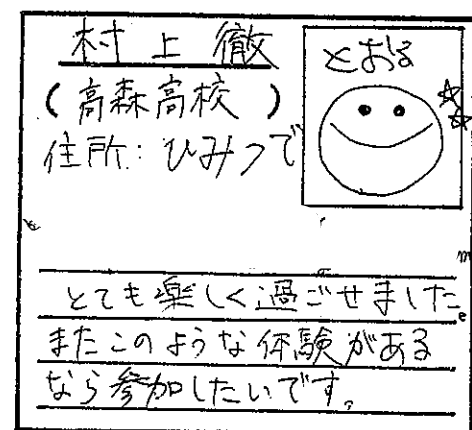 村上 徹
(高森高校)
住所:ひみつで
とおる
とても楽しく過ごせました。
またこのような体験がある
なら参加したいです。